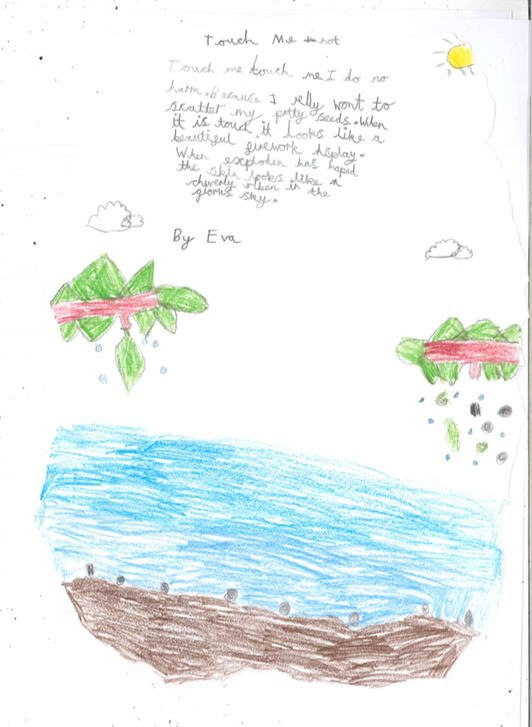 Touch Me not
Touch me touch me I do no
harm. Because I relly wont to
scatter my pritty seeds. When
it is touch it looks like a
beautiful firework display.
When exploden has haped
the skin looks like a
when in the
sky.
By Eva